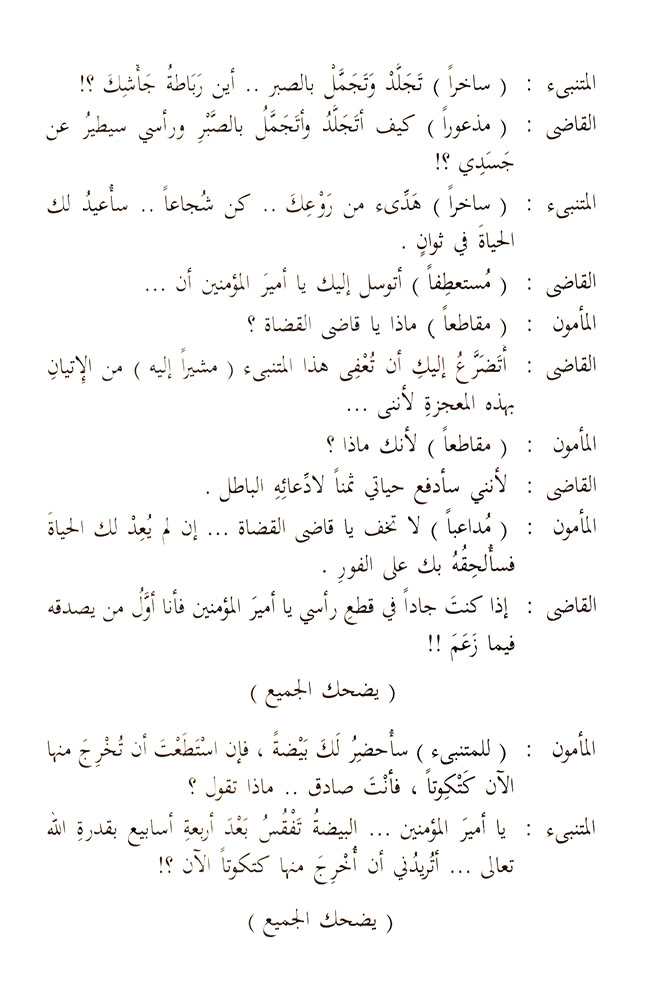 المتنبىء : ( ساخراً ) تَجَلَّدْ وَتَجَمَّلْ بالصبر .. أين رَبَاطةُ جَأْشِكَ ؟!
القاضى : ( مذعوراً ) كيف أتَجَلَّدُ وأتَجَمَّلُ بالصَّبْرِ ورأسي سيطيرُ عن
جَسَدِي ؟!
المتنبىء : ( ساخراً ) هَدِّىء من رَوْعِكَ .. كن شُجاعاً .. سأُعيدُ لك
الحياةَ في ثوانٍ .
القاضى : ( مُستعطِفاً ) أتوسل إليك يا أميرَ المؤمنين أن ...
المأمون : ( مقاطعاً ) ماذا يا قاضى القضاة ؟
القاضى : أَتَضَرَّعُ إليكِ أن تُعْفِى هذا المتنبىء ( مشيراً إليه ) من الإِتيانِ
بهذه المعجزةِ لأننى ...
المأمون : ( مقاطعاً ) لأنك ماذا ؟
القاضى : لأنني سأدفع حياتي ثمناً لادِّعائِهِ الباطل .
المأمون : ( مُداعباً ) لا تخف يا قاضى القضاة ... إن لم يُعِدْ لك الحياةَ
فسأُلحِقُهُ بك على الفورِ .
القاضى : إذا كنتَ جاداً في قطعِ رأسي يا أميرَ المؤمنين فأنا أوَّلُ من يصدقه
فيما زَعَمَ !!
( يضحك الجميع )
المأمون : ( للمتنبىء ) سأُحضِرُ لَكَ بَيْضةً ، فإن اسْتَطَعْتَ أن تُخْرِجَ منها
الآن كَتْكِوتاً ، فأنْتَ صادق .. ماذا تقول ؟
المتنبىء : يا أميرَ المؤمنين ... البيضةُ تَفْقُسُ بَعْدَ أربعةِ أسابيع بقدرةِ الله
تعالى ... أتُريدُني أن أُخْرِجَ منها كتكوتاً الآن ؟!
( يضحك الجميع )